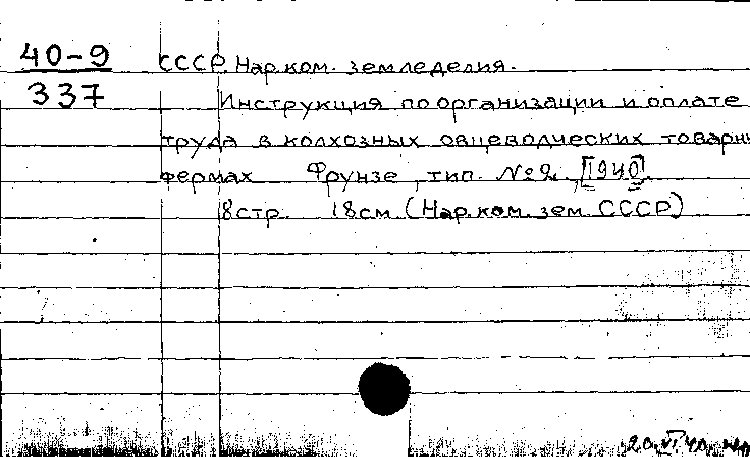 40-9
337
СССР. Нар.ком. земледелия.
Инструкция по организации и оплате
труда в колхозных овцеводческих товарн
фермах Фрунзе, тип. №2, [1940].
8стр. 18см (Нар.ком.зем СССР)
20.VI.40.